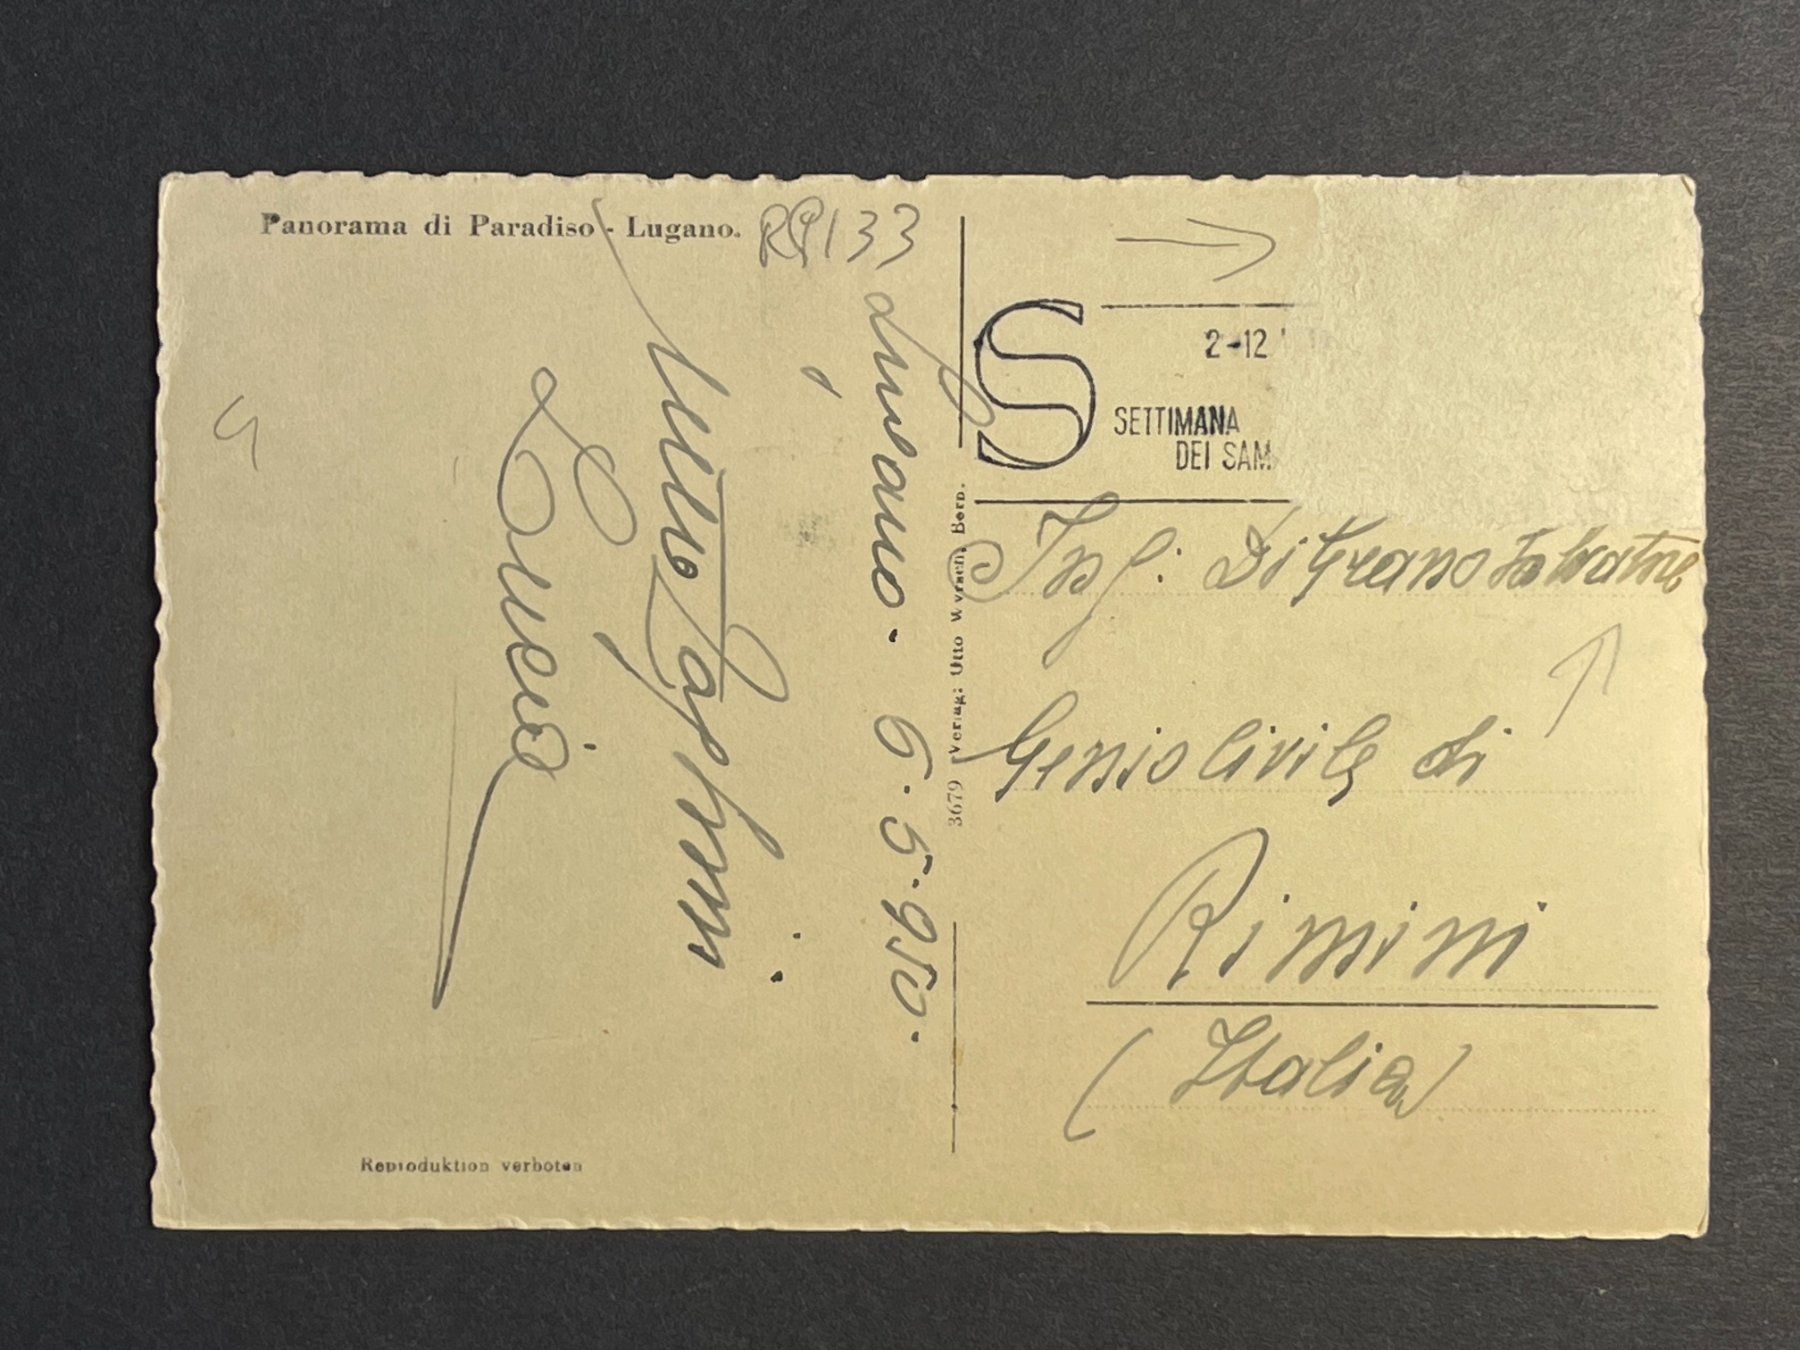 Panorama di Paradiso - Lugano.
RP133
Lugano. 6-5-950.
Lucio
Reproduktion verboten
3679 Verlag: Otto Wyrsch, Bern.
2-12
SETTIMANA
DEI SAM
Ing. Di Grano Salvatore
Genio Civile di
Rimini
(Italia)